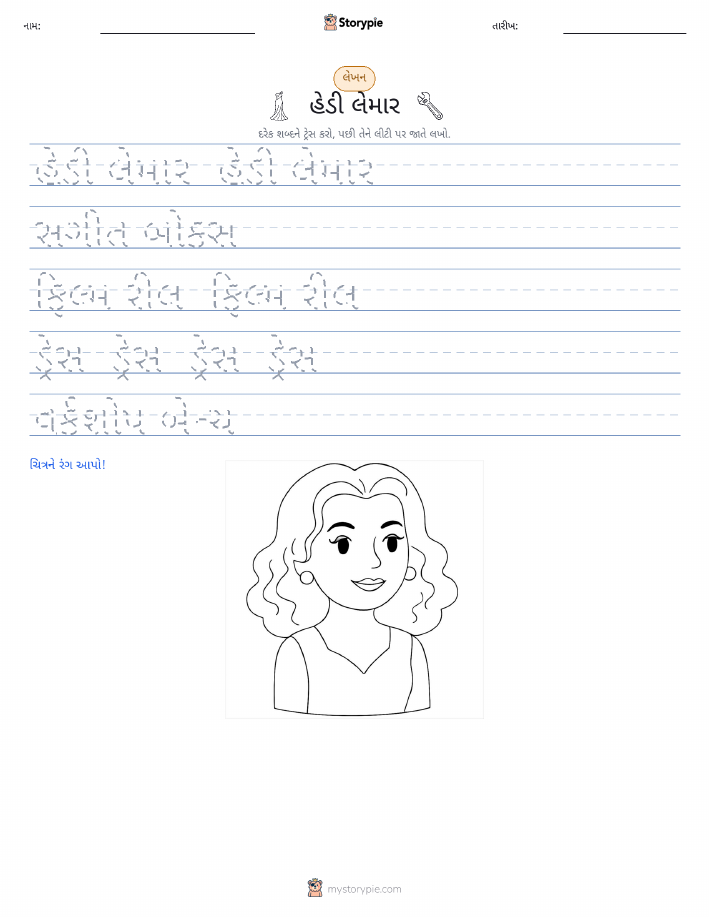 નામ:
Storypie
તારીખ:
લેખન
હેડી લેમાર
દરેક શબ્દને ટ્રેસ કરો, પછી તેને લીટી પર જાતે લખો.
હેડી લેમાર હેડી લેમાર
સગીત બોક્સ
ફિલ્મ રીલ ફિલ્મ રીલ
ડ્રેસ ડ્રેસ ડ્રેસ ડ્રેસ
વર્કશોપ બેન્ચ
ચિત્રને રંગ આપો!
mystorypie.com